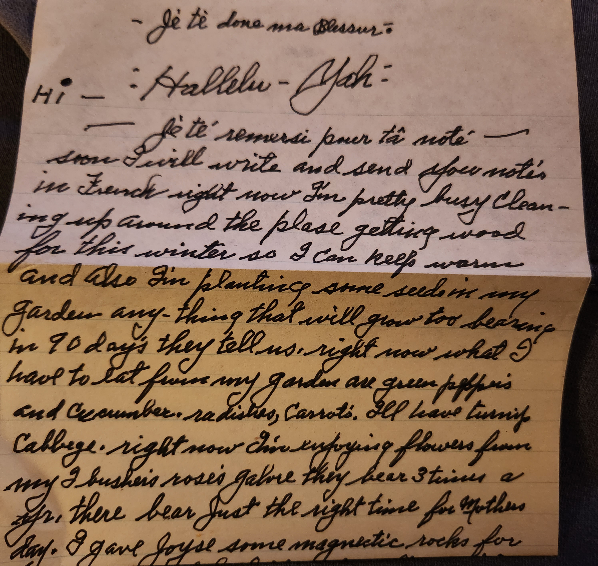 - Jè tè done ma Blessur -
Hi - : Hallelu - Yah :
- Jè té remersi pour tâ noté -
soon I will write and send you notes
in French right now I'm pretty busy clean-
ing up around the plase getting wood
for this winter so I can keep warm
and also I'm planting some seeds in my
garden any-thing that will grow too bearing
in 90 day's they tell us. right now what I
have to eat from my garden are green peppers
and Cucumber. radishes, Carrots. I'll have turnip
Cabbege. right now I'm enjoying flowers from
my bushes rose's galore they bear 3 times a
yr, there bear Just the right time for Mothers
day. I gave Joyse some magnectic rocks for